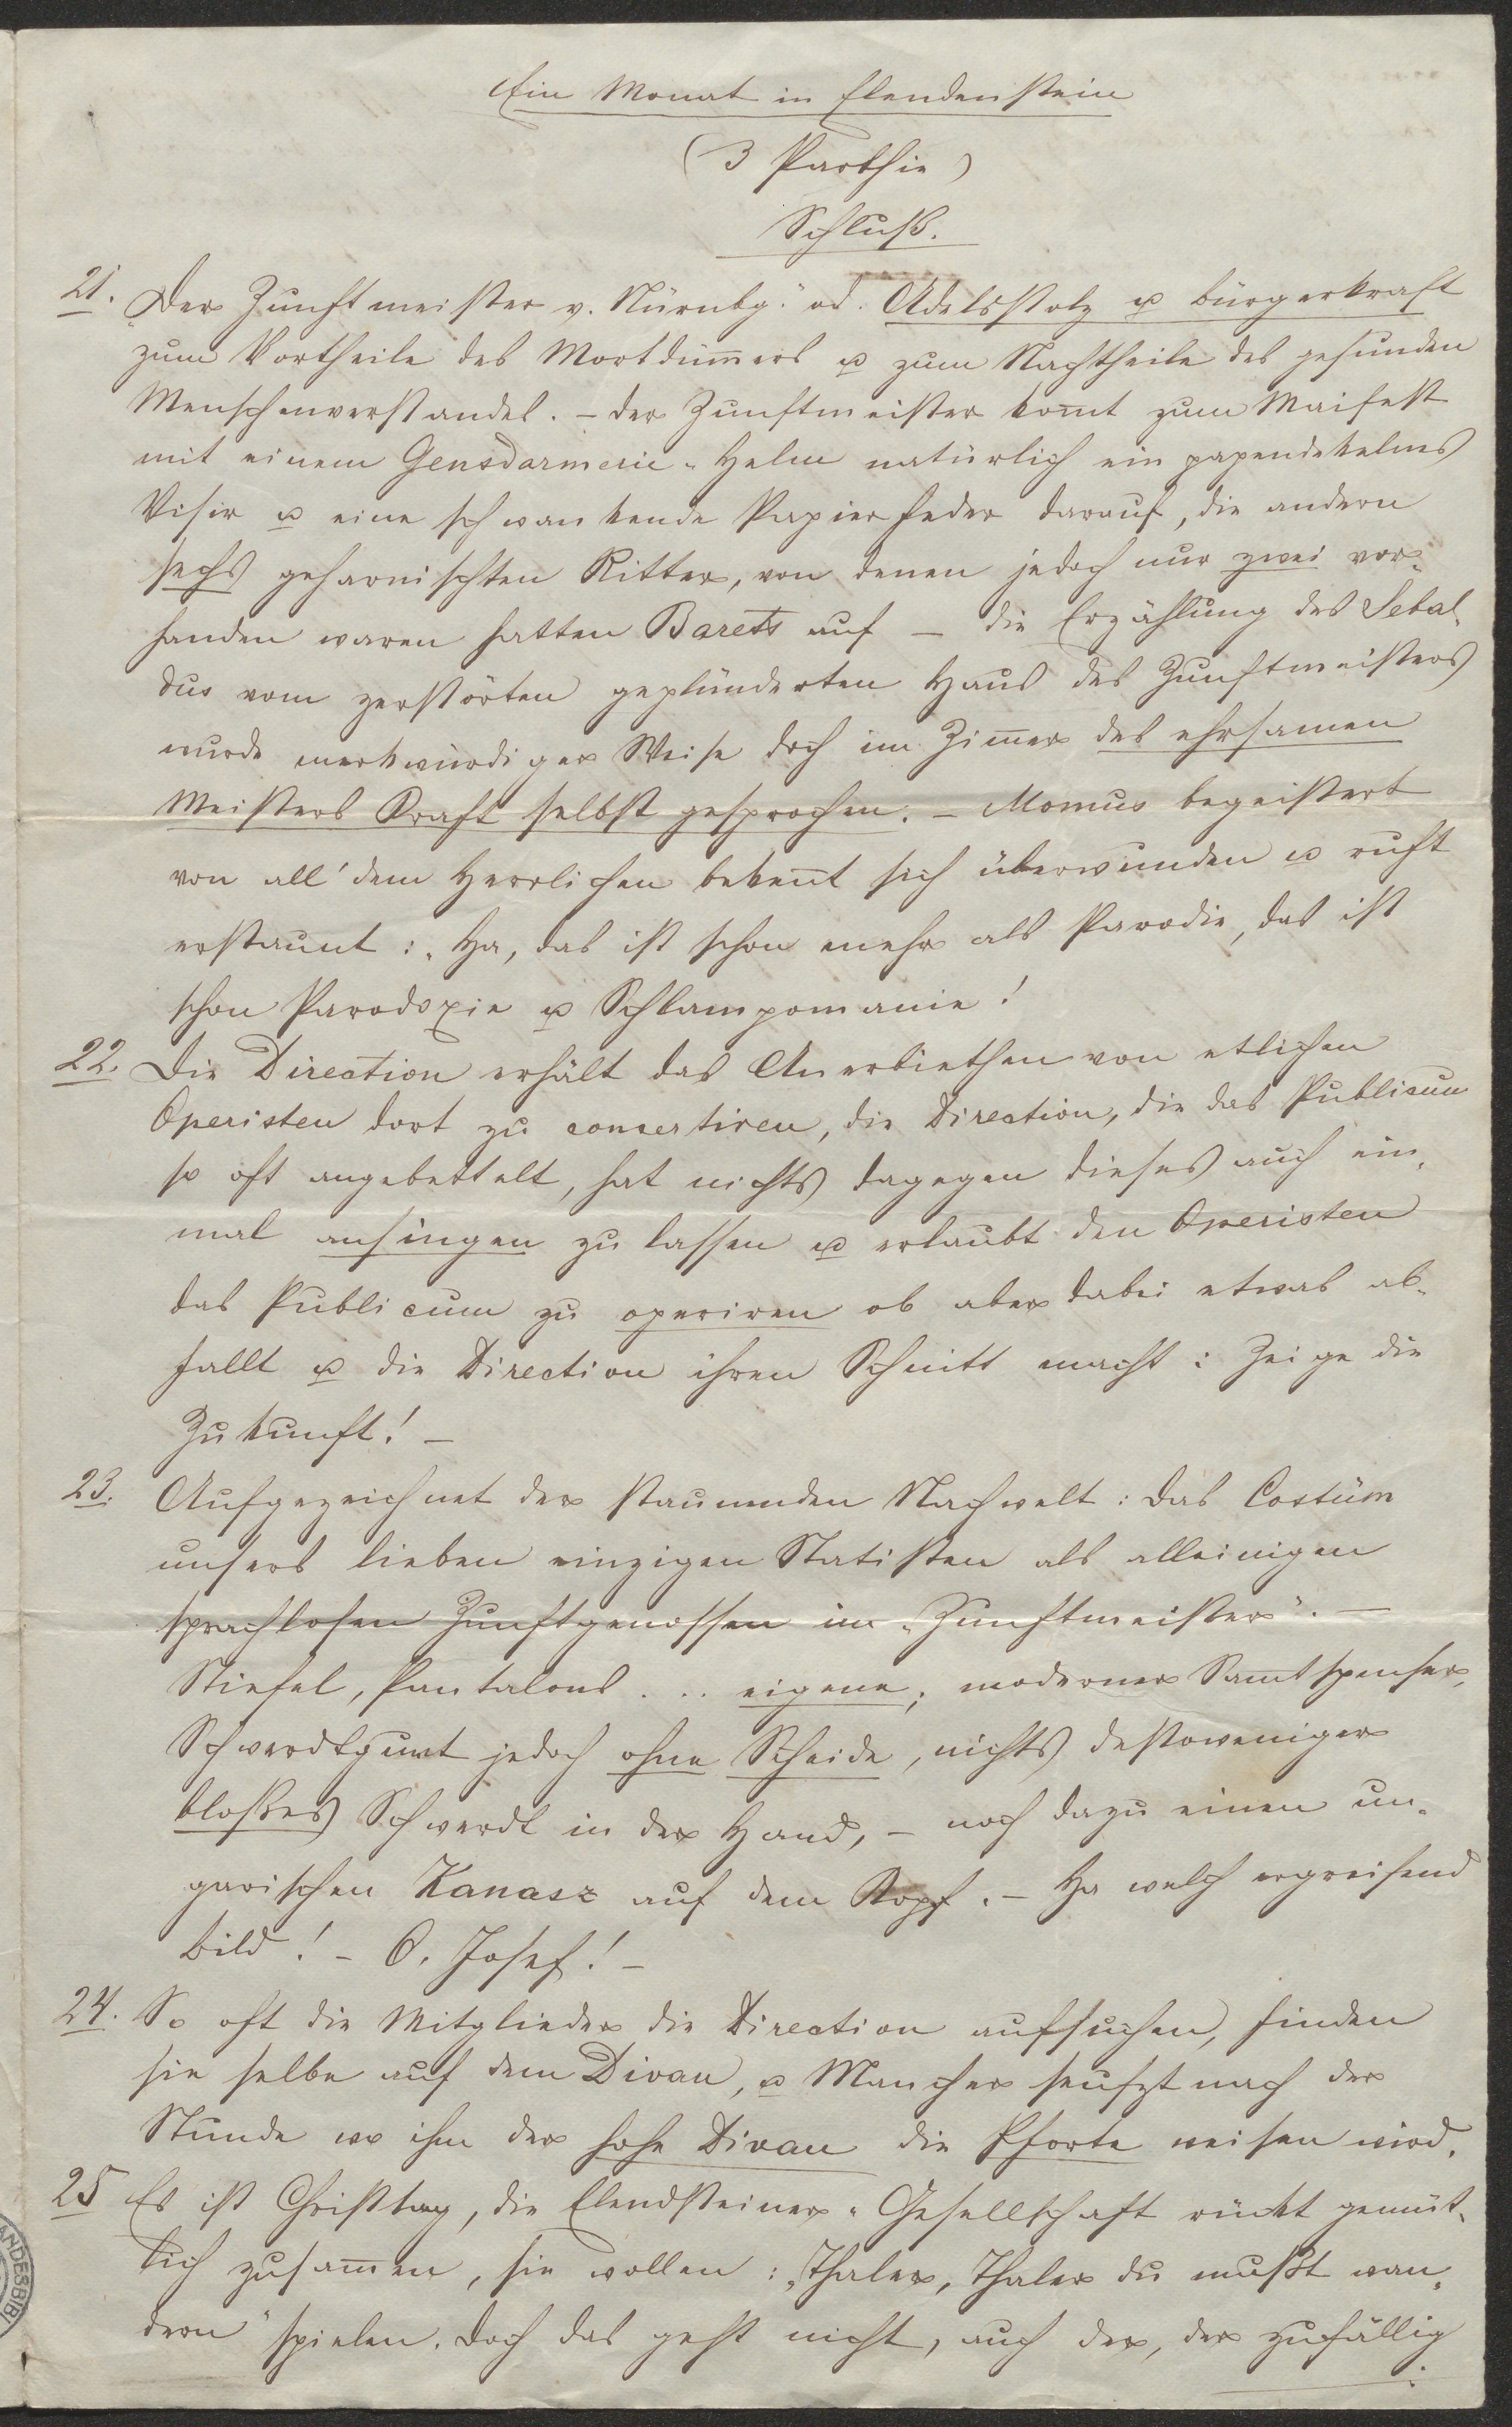 Ein Monat in Elendenstein
(3 Parthie)
Schluß.
21. „Der Zunftmeister v. Nürnbg.“ od. Adelsstolz u Bürgerkraft
zum Vortheile des Mortdum̅ers u zum Nachtheile des gesunden
Menschenverstandes. – der Zunftmeister kom̅t zum Maifest
mit einem Gensdarmerie-Helm natürlich ein papendekelnes
Visir u eine schwankende Papierfeder darauf, die andern
sechs geharnischten Ritter, von denen jedoch nur zwei vor-
handen waren hatten Barets auf – die Erzählung des Sebal-
dus vom zerstörten geplünderten Haus des Zunftmeisters
wurde merkwürdiger Weise doch im Zim̅er des ehrsamen
Meisters Kraft selbst gesprochen. – Momus begeistert
von all' dem Herrlichen beken̅t sich überwunden u ruft
erstaunt: „Ha, das ist schon mehr als Parodie, das ist
schon Parodoxie u Schlampomanie!
22. Die Direction erhält das Anerbiethen von etlichen
Operisten dort zu concertiren, die Direction, die das Publicum
so oft angebettelt, hat nichts dagegen dieses auch ein-
mal ansingen zu lassen u erlaubt den Operisten
das Publicum zu operiren ob aber dabei etwas ab-
fallt u die Direction ihren Schnitt macht: Zeige die
Zukunft! –
23. Aufgezeichnet der staunenden Nachwelt: Das Costüm
unsers lieben einzigen Statisten als alleinigen
sprachlosen Zunftgenossen im „Zunftmeister“. –
Stiefel, Pantalons . .. eigene; moderner Samtspenser,
Schwerdtgurt jedoch ohne Scheide, nichts destoweniger
bloßes Schwerdt in der Hand, – noch dazu einen un-
garischen Kanasz auf dem Kopf. – Ha welch ergreifend
Bild! – O, Josef! –
24. So oft die Mitglieder die Direction aufsuchen, finden
sie selbe auf dem Divan, u Mancher seufzt nach der
Stunde wo ihm der hohe Divan die Pforte weisen wird.
25 Es ist Christtag, die Elendsteiner-Gesellschaft rückt gemüt-
lich zusam̅en, sie wollen: „Thaler, Thaler du mußt wan-
dern“ spielen. Doch das geht nicht, auch der, der zufällig
ANDESBIBL